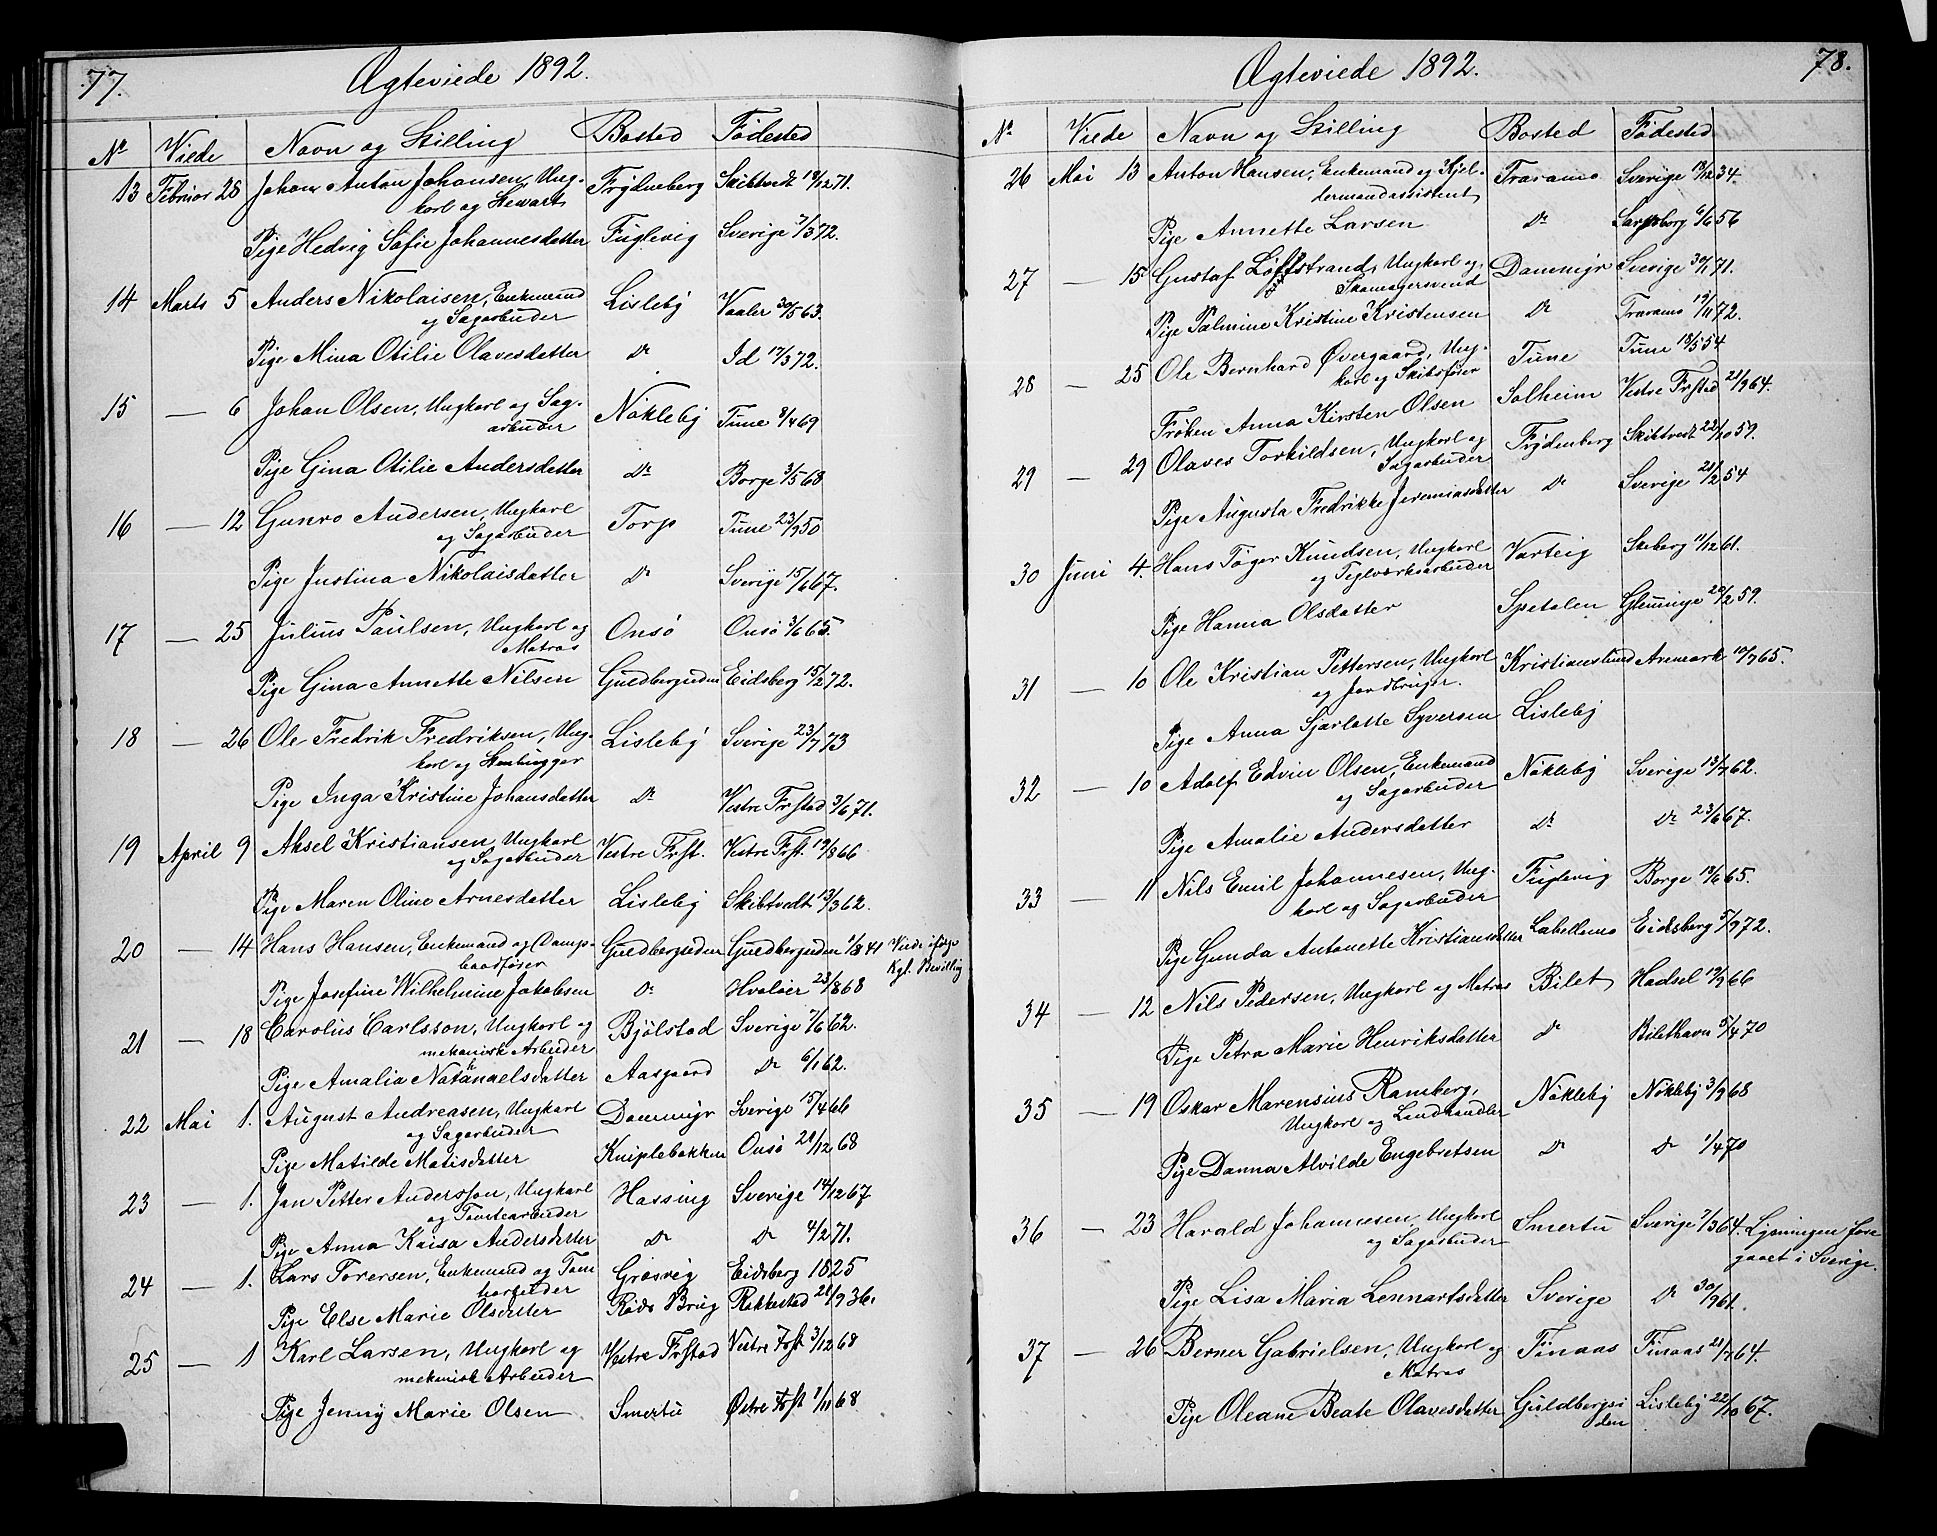 77.
Ægteviede 1892.
No Viede Navn og Stilling Bosted Fødested
13 Februar 28 Johan Anton Johansen, Ung- Trydneberg Skibtvedt 18/12 71.
karl og Stewart
Pige Hedvig Sofie Johannesdatter Fuglevig Sverige 7/3 72.
14 Marts 5 Anders Nikolaisen, Enkemand Lisleby Vaaler 30/5 63.
og Sagarbeider
Pige Mina Otilie Olavesdatter Do Id 17/3 72.
15 — 6 Johan Olsen, Ungkarl og Sag- Nökleby Tune 8/4 69
arbeider
Pige Gina Otilie Andersdatter Do Borge 3/5 68
16 — 12 Gunro Andersen, Ungkarl Torp Tune 23/9 50
og Sagarbeider
Pige Justina Nikolaisdatter Do Sverige 15/6 67.
17 — 25 Julius Paulsen, Ungkarl og Onsö Onsö 3/6 65.
Matros
Pige Gina Annette Nilsen Guldbergsiden Eidsberg 15/2 72.
18 — 26 Ole Fredrik Fredriksen, Ung- Lisleby Sverige 23/7 73
karl og Stenhugger
Pige Inga Kristine Johansdatter Do Vestre Frstad 3/6 71.
19 April 9 Aksel Kristiansen, Ungkarl Vestre Frst. Vestre Frst. 19/8 66
og Sagarbeider
Pige Maren Oline Arnesdatter Lisleby Skibtvedt 13/3 62.
20 — 14 Hans Hansen, Enkemand og Damp- Guldbergsiden Guldbergsiden 1/8 41 Viede ifølge
baadfører Kgl. Bevilling
Pige Josefine Wilhelmine Jakobsen Do Hvaløer 28/8 68
21 — 18 Carolus Carlsson, Ungkarl og Bjölstad Sverige 7/6 62.
mekanisk Arbeider
Pige Amalia Natanaelsdatter Aasgaard Do 6/1 62.
22 Mai 1. August Andreasen, Ungkarl Dammyr Sverige 15/4 66
og Sagarbeider
Pige Matilde Matisdatter Kniplebakken Onsö 21/12 68
23 — 1. Jan Petter Andersson, Ungkarl Hassing Sverige 14/12 67
og Tomtearbeider
Pige Anna Kaisa Andersdatter Do Do 4/2 71.
24 — 1. Lars Torersen, Enkemand og Tom Græsvig Eidsberg 1825
tearbeider
Pige Else Marie Olsdatter Röds Brug Rakkestad 21/9 36.
25 — 1 Karl Larsen, Ungkarl og Vestre Frstad Vestre Frst 3/12 68
mekanisk Arbeider
Pige Jenny Marie Olsen Smertu Østre Frst 1/11 68
78.
Ægteviede 1892.
No Viede Navn og Stilling Bosted Fødested
26 Mai 13 Anton Hansen, Enkemand og Kjel- Traramo Sverige 19/12 34.
dermandassistent
Pige Annette Larsen Do Sarpsborg 6/6 56
27 — 15 Gustaf Løfstrand, Ungkarl og Dammyr Sverige 30/1 71.
Skomagersvend
Pige Palmine Kristine Kristensen Do Traramo 19/11 72.
28 — 25 Ole Bernhard Øvergaard, Ung- Tune Tune 18/5 54
karl og Skibsfører
Frøken Anna Kirsten Olsen Solheim Vestre Frstad 21/9 64.
29 — 29 Olaves Torkildsen, Ungkarl og Trydenberg Skibtvedt 22/10 59.
Sagarbeider
Pige Augusta Fredrikke Jeremiasdatter Do Sverige 21/2 54
30 Juni 4. Hans Töger Knudsen, Ungkarl Varteig Skeberg 11/12 61.
og Teglverksarbeider
Pige Hanna Olsdatter Spetalen Glemmge 20/2 59.
31 — 10 Ole Kristian Pettersen, Ungkarl Kristianslund Aremark 10/7 65.
og Jordbruger.
Pige Anna Sjarlatte Syversen Lisleby
32 — 10 Adolf Edvin Olsen, Enkemand Nökleby Sverige 13/7 62.
og Sagarbeider
Pige Amalie Andersdatter Do Do 23/6 67.
33 — 11 Nils Emil Johannesen, Ung- Fuglevig Borge 19/6 65.
karl og Sagarbeider
Pige Gunda Antonette Kristiansdatter Labellamo Eidsberg 5/9 72.
34 — 12 Nils Pedersen, Ungkarl og Matros Bilet Hadsel 19/9 66
Pige Petra Marie Henriksdatter Do Bilethavn 5/4 70
35 — 19 Oskar Marensius Ramberg, Nökleby Nökleby 3/9 68
Ungkarl og Landhandler
Pige Danna Alvilde Engebretsen Do Do 1/4 70
36 — 23 Harald Johannesen, Ungkarl Smertu Sverige 7/3 64. Lysningen fore
og Sagarbeider gaaet i Sverige.
Pige Lisa Maria Lennartsdatter Sverige Do 30/9 61.
37 — 26 Berner Gabrielsen, Ungkarl og Tinaas Tinaas 21/7 64.
Matros
Pige Oleane Beate Olavesdatter Guldbergsi Lisleby 22/10 67.
den